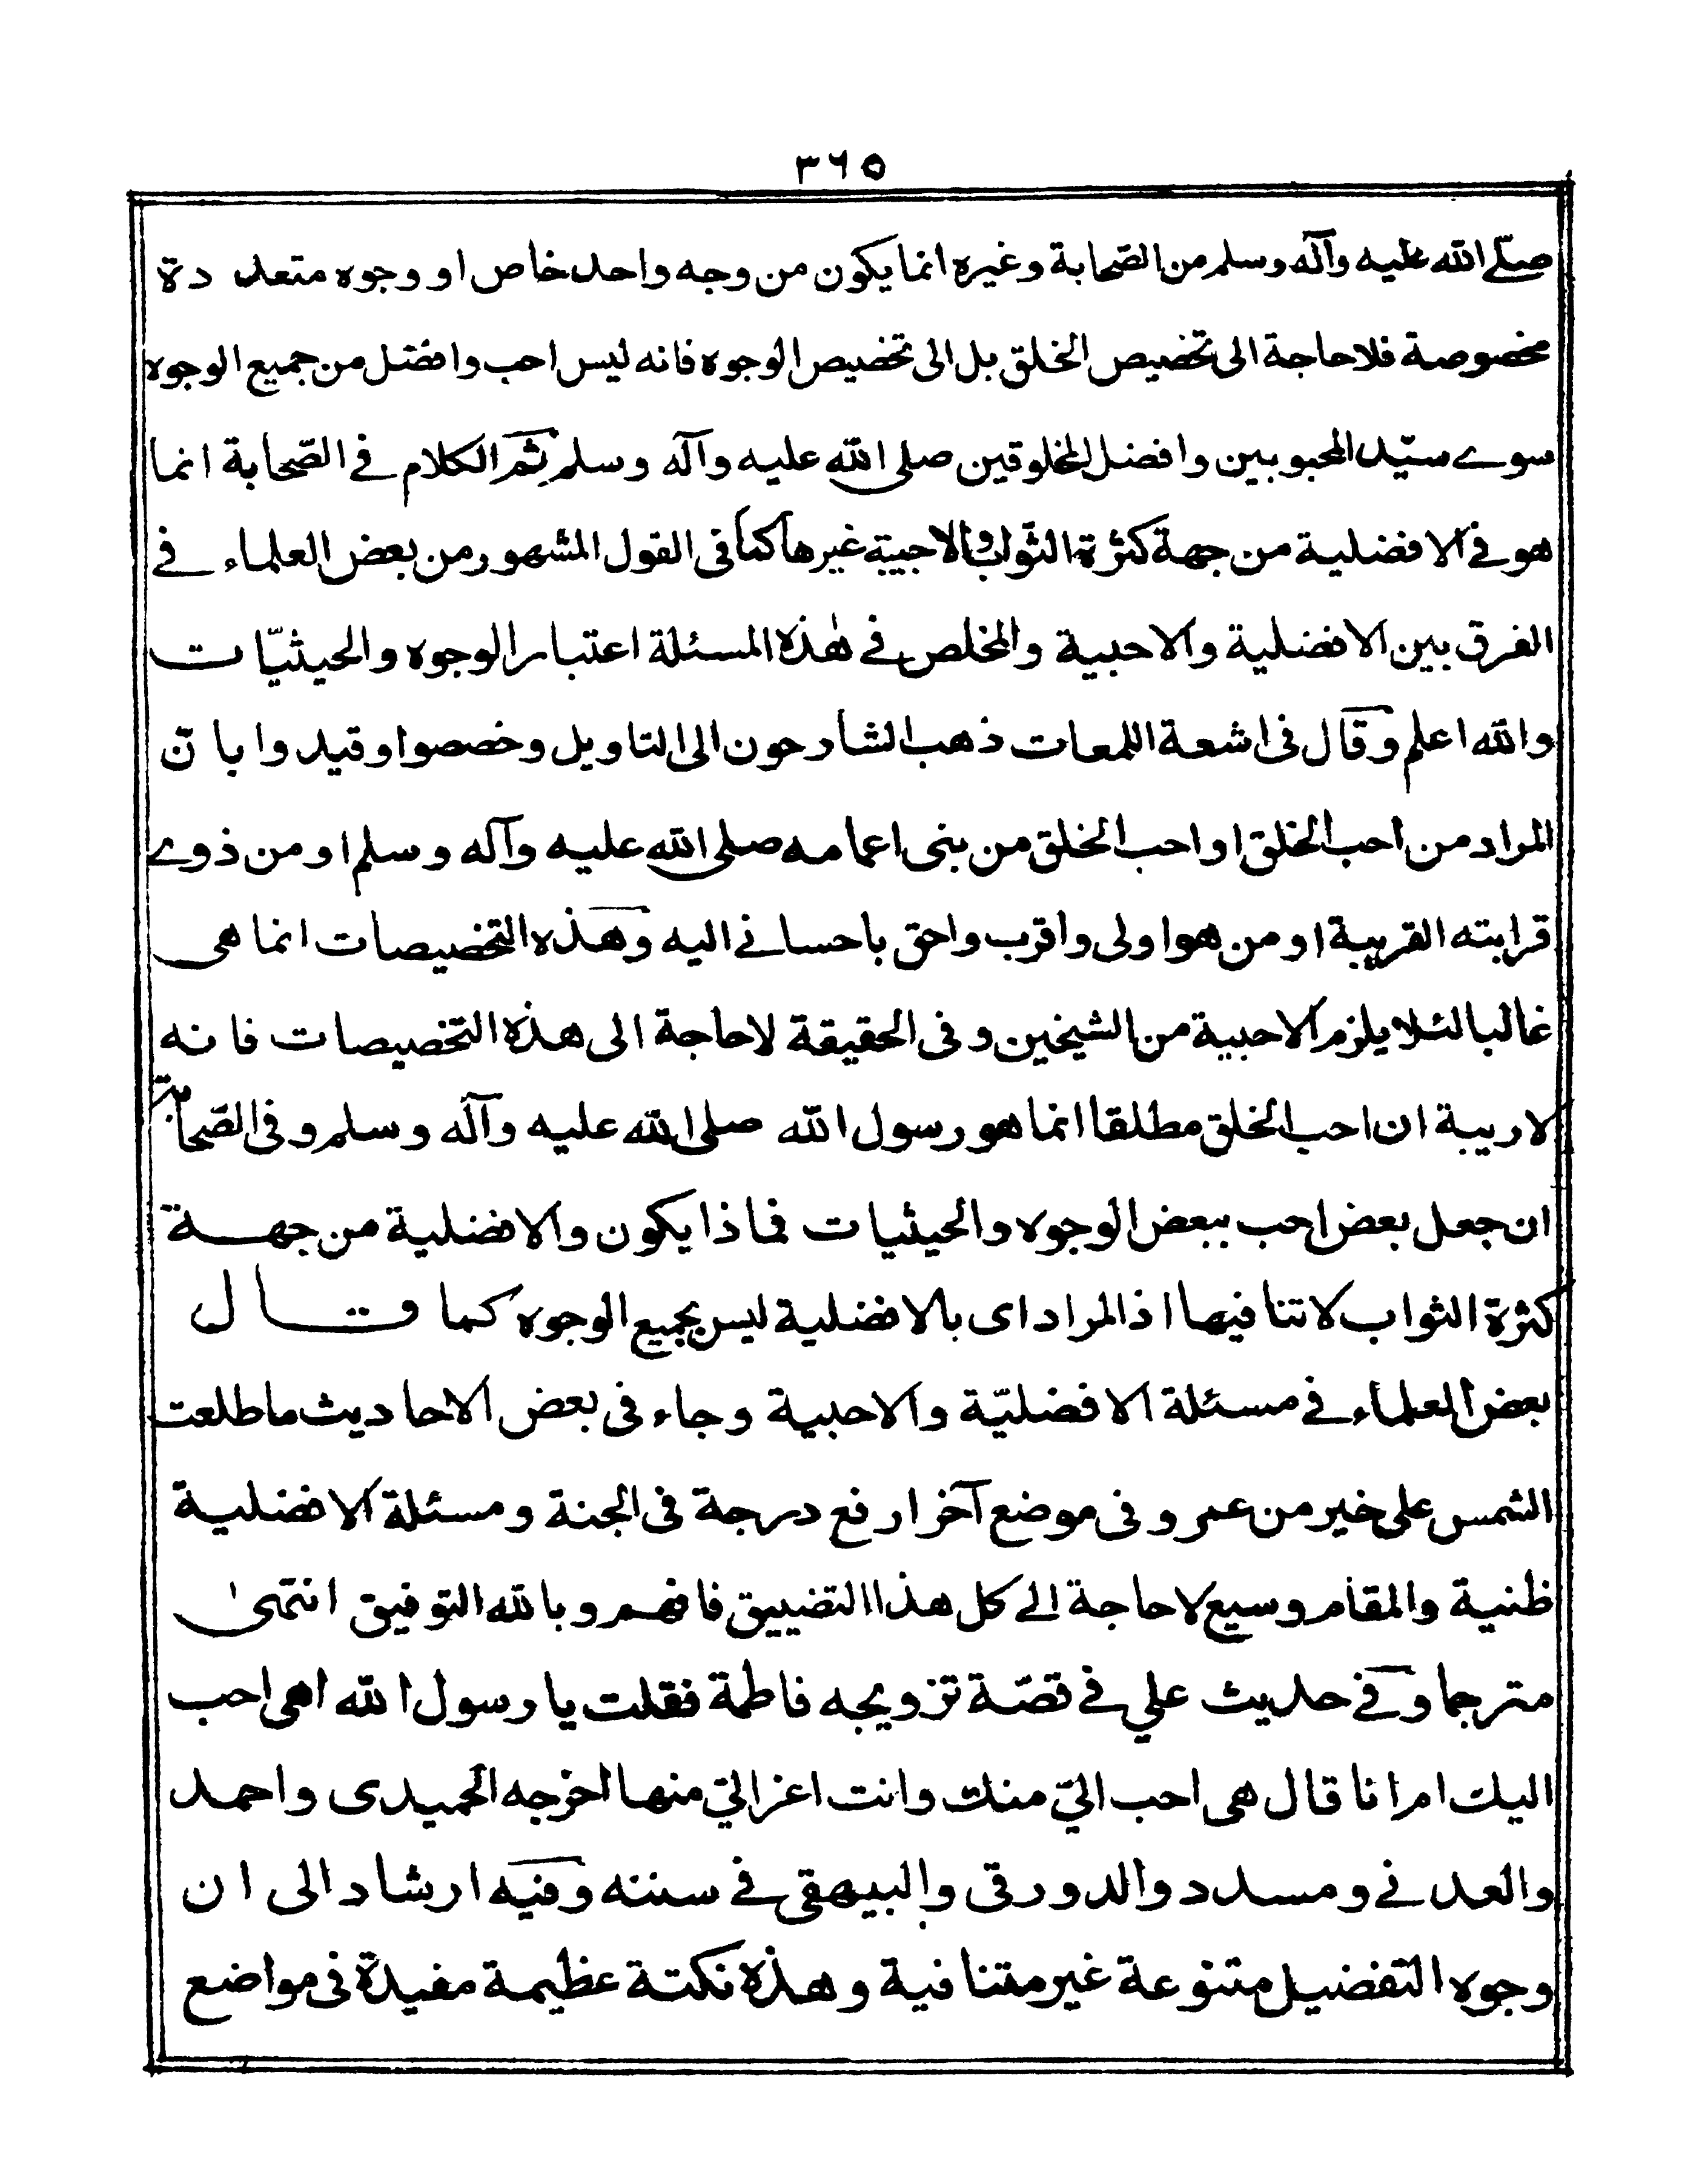 ٣٦٥
صلّے الله عليه وآله وسلم من الصّحابة وغيره انما يكون من وجه واحد خاص او وجوه متعد دة
مخصوصة فلاحاجة الى تخصيص الخلق بل الى تخصيص الوجوه فانه ليس احب وافضل من جميع الوجوه
سوے سيّد المحبوبين وافضل المخلوقين صلى الله عليه وآله وسلم ثم الكلام فے الصّحابة انما
هو فے الافضلية من جهة كثرة الثّواب والاحبية غيرها كما فى القول المشهور من بعض العلماء فے
الفرق بين الافضلية والاحبية والمخلص فے هٰذه المسئلة اعتبار الوجوه والحيثيّات
والله اعلم وقال فى اشعة اللمعات ذهب الشارحون الى التاويل وخصصوا وقيدوا بانّ
المراد من احب الخلق او احب الخلق من بنى اعمامه صلى الله عليه وآله وسلم او من ذوے
قرابته القريبة او من هو اولى واقرب واحق باحسانے اليه وهذه التخصيصات انما هى
غالبا لئلا يلزم الاحبية من الشيخين وفى الحقيقة لاحاجة الى هذه التخصيصات فانه
لاريبة ان احب الخلق مطلقا انما هو رسول الله صلى الله عليه وآله وسلم وفى الصّحابة
ان جعل بعض احب ببعض الوجوه والحيثيات فماذا يكون والافضلية من جهة
كثرة الثواب لاتنافيها اذ المراد اى بالافضلية ليس بجميع الوجوه كما قال
بعض العلماء فے مسئلة الافضليّة والاحبية وجاء فى بعض الاحاديث ما طلعت
الشمس على خير من عمر وفى موضع آخر ارفع درجة فى الجنة ومسئلة الافضلية
ظنية والمقام وسيع لاحاجة الے كل هذا التضييق فافهم وبالله التوفيق انتهىٰ
مترجما وفے حديث علي فے قصّة تزويجه فاطمة فقلت يا رسول الله اهى احب
اليك ام انا قال هى احب اليّ منك وانت اعز اليّ منها اخرجه الحميدى واحمد
والعدنے ومسدد والدورقى والبيهقى فے سننه وفيه ارشاد الى ان
وجوه التفضيل متنوعة غير متنافية وهذه نكتة عظيمة مفيدة فى مواضع